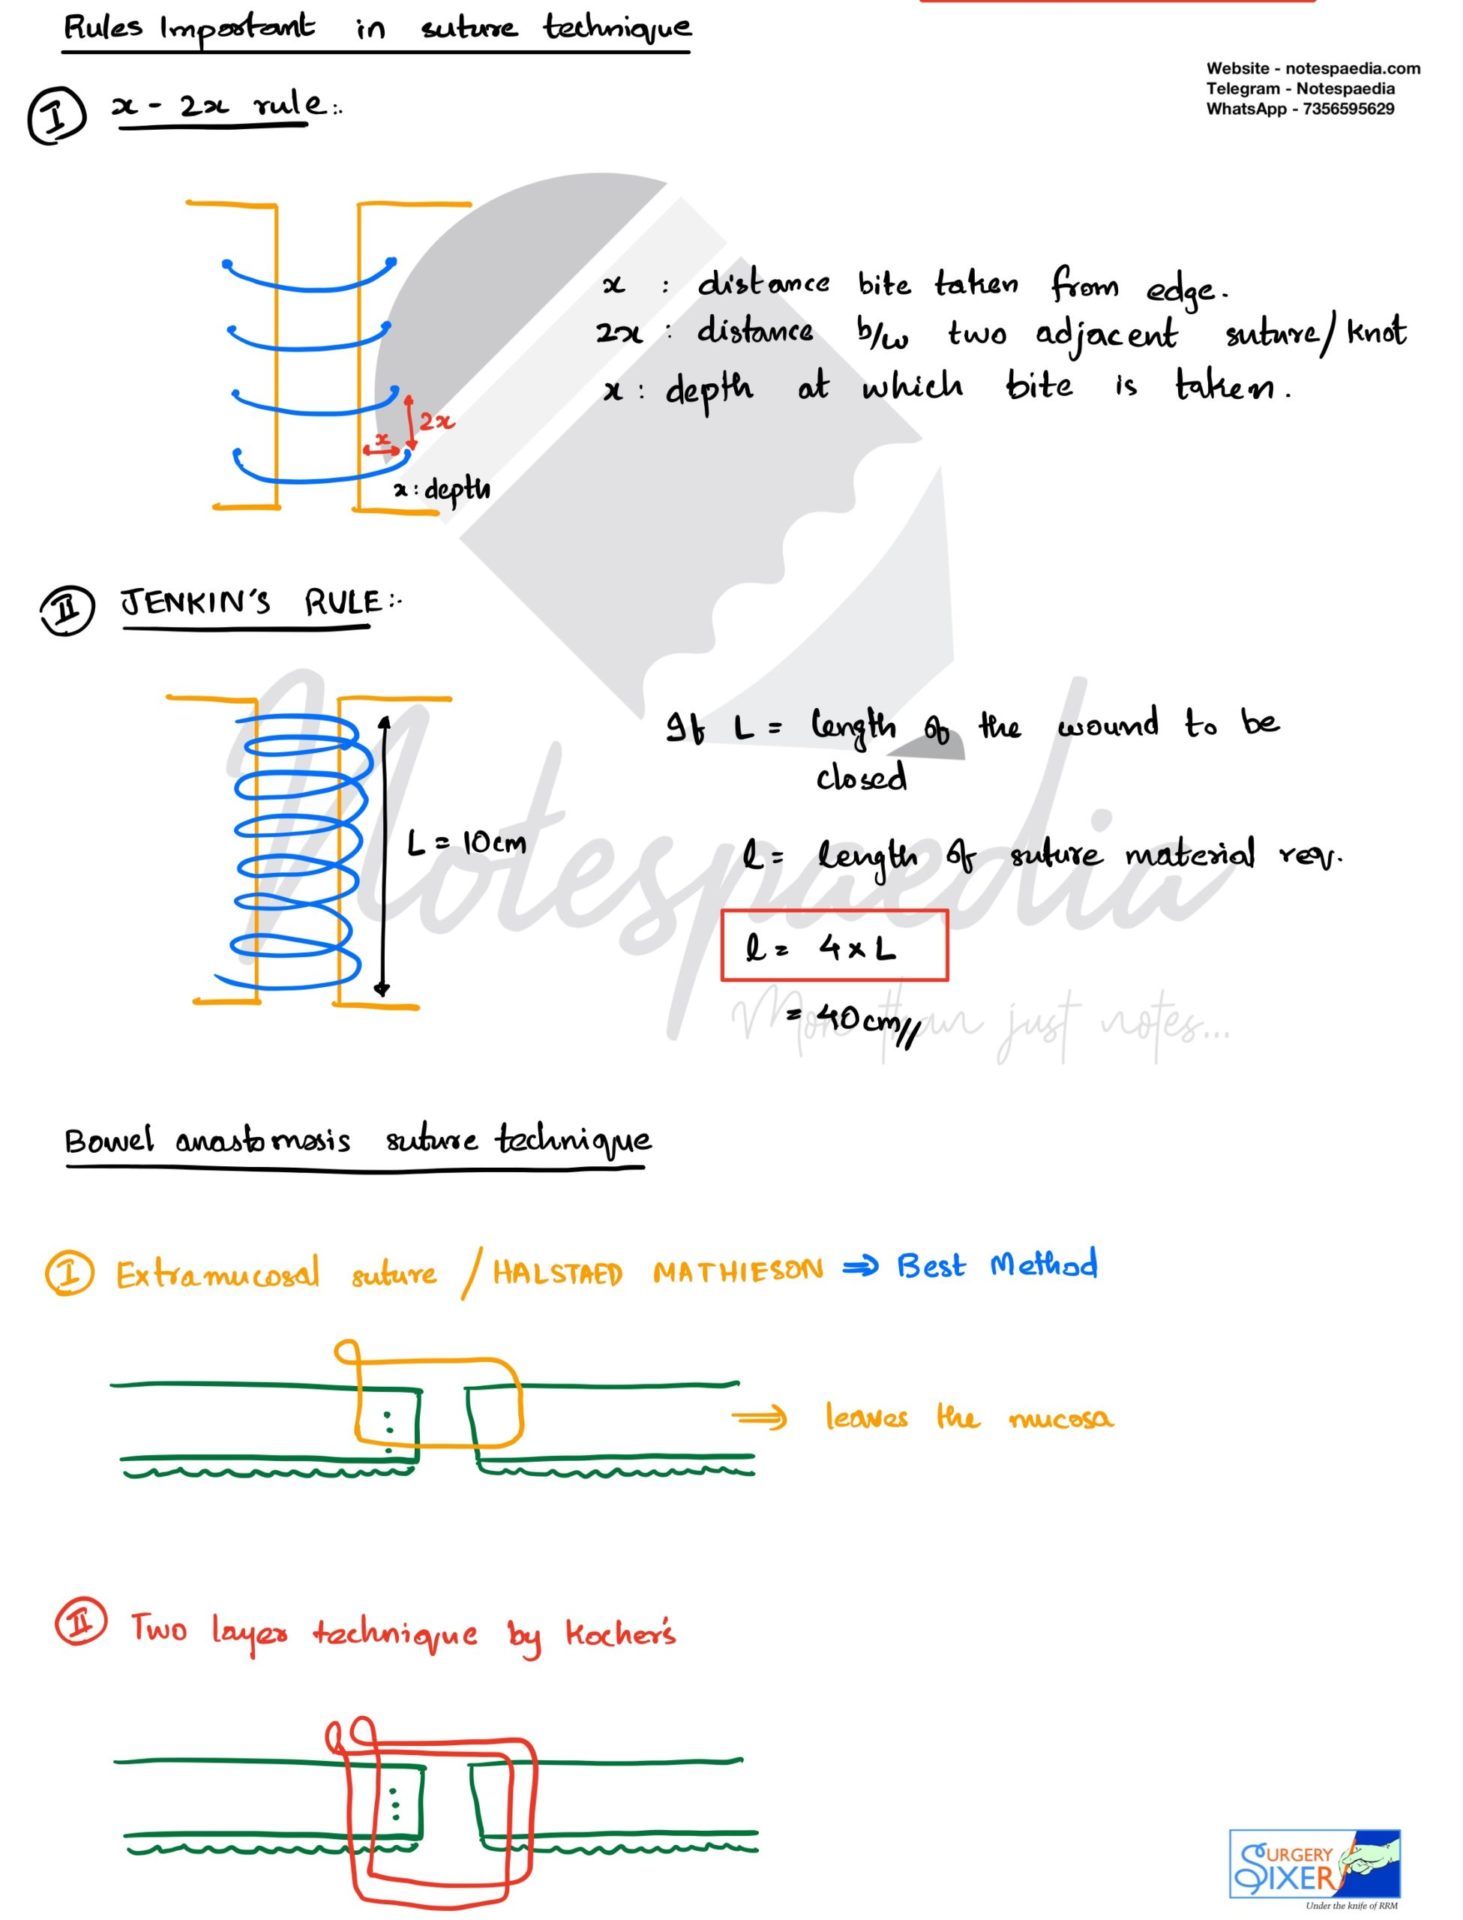 Rules Important in suture technique
Website - notespaedia.com
Telegram - Notespaedia
WhatsApp - 7356595629
I x - 2x rule:.
x : distance bite taken from edge.
2x : distance b/w two adjacent suture/knot
x : depth at which bite is taken.
2x
x
x : depth
II JENKIN'S RULE:-
If L = length of the wound to be
closed
L = 10cm
l = length of suture material req.
l = 4 x L
= 40cm//
Notespaedia
More than just notes...
Bowel anastomosis suture technique
I Extramucosal suture / HALSTAED MATHIESON ⇒ Best Method
⇒ leaves the mucosa
II Two layer technique by Kocher's
SURGERY
SIXER
Under the knife of RRM